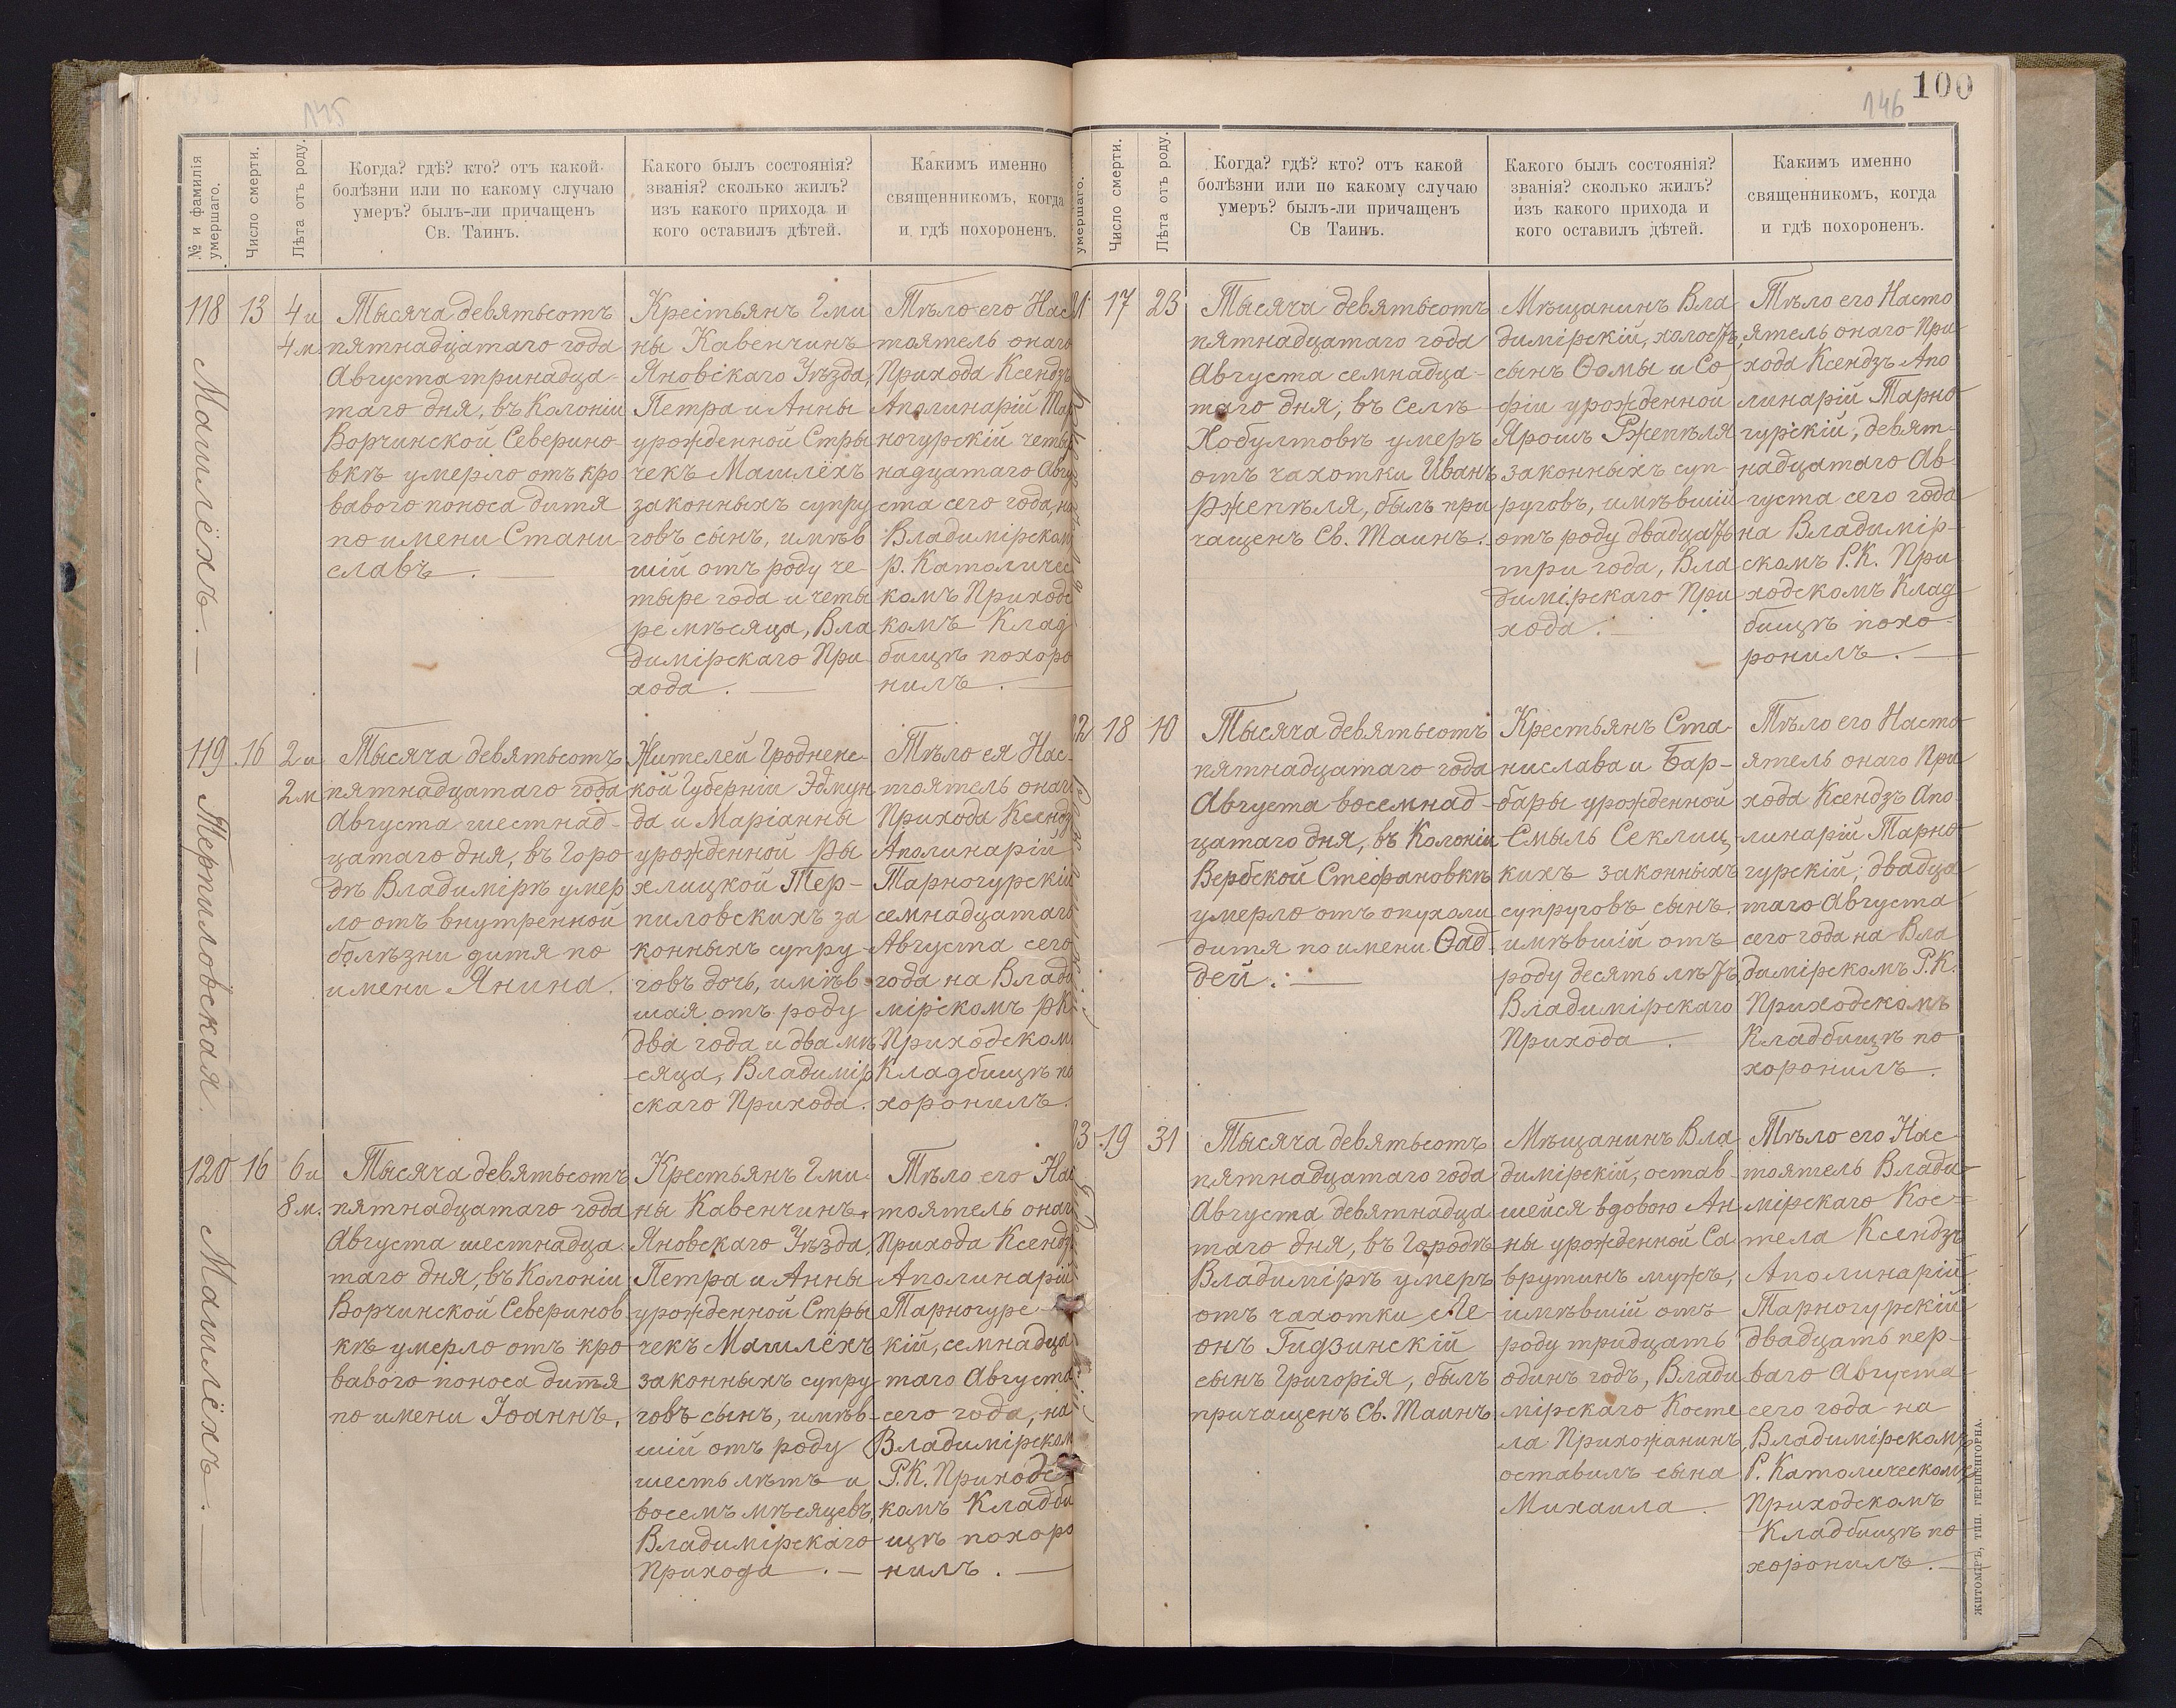 145
№ и фамилія умершаго.
Число смерти.
Лѣта отъ роду.
Когда? гдѣ? кто? отъ какой
болѣзни или по какому случаю
умеръ? былъ-ли причащенъ
Св. Таинъ.
Какого былъ состоянія?
званія? сколько жилъ?
изъ какого прихода и
кого оставилъ дѣтей.
Какимъ именно
священникомъ, когда
и гдѣ похороненъ.
118
Машлёхъ.
13
4 и
4 м.
Тысяча девятьсотъ
пятнадцатаго года
Августа тринадца-
таго дня, въ Колоніи
Ворчинской Северино-
вкѣ умерло отъ кро
ваваго поноса дитя
по имени Стани
славъ.
Крестьянъ Гми
ны Кавенчинъ
Яновскаго Уѣзда,
Петра и Анны
урожденной Стры
чекъ Машлёхъ
законныхъ супру
говъ сынъ, имѣв
шій отъ роду че
тыре года и четы
ре мѣсяца, Вла
димірскаго При
хода.
Тѣло его Нас
тоятель онаго
Прихода Ксендзъ
Аполинарій Тар
ногурскій четыр
надцатаго Авгу
ста сего года, на
Владимірском
Р. Католичес
комъ Приходс
комъ Клад
бищѣ похоро
нилъ.
119
Терпиловская.
16
2 и
2 м
Тысяча девятьсотъ
пятнадцатаго года
Августа шестнад-
цатаго дня, въ Горо
дѣ Владимірѣ умер
ло отъ внутренной
болѣзни дитя по
имени Янина.
Жителей Гродненс-
кой Губерніи Эдмун
да и Маріанны
урожденной Ры
хлицкой Тер-
пиловскихъ за
конныхъ супру
говъ дочь, имѣв
шая отъ роду
два года и два мѣ
сяца, Владимір
скаго Прихода.
Тѣло ея Нас-
тоятель онаго
Прихода Ксендз
Аполинарій
Тарногурскій
семнадцатаго
Августа сего
года на Влади
мірскомъ РК
Приходском
Кладбищѣ по
хоронилъ.
120
Машлёхъ.
16
6 и
8 м.
Тысяча девятьсотъ
пятнадцатаго года
Августа шестнадца
таго дня, въ Колоніи
Ворчинской Северинов
кѣ умерло отъ кро
ваваго поноса дитя
по имени Іоаннъ.
Крестьянъ Гми
ны Кавенчинъ
Яновскаго Уѣзда,
Петра и Анны
урожденной Стры
чекъ Машлёхъ
законныхъ супру
говъ сынъ, имѣв-
шій отъ роду
шесть лѣтъ и
восемъ мѣсяцевъ,
Владимірскаго
Прихода.
Тѣло его Нас
тоятель онаго
Прихода Ксендз
Аполинарій
Тарногурс
кій, семнадца
таго Августа
сего года, на
Владимірском
Р.К. Приходс
комъ Кладби
щѣ похоро
нилъ.
100
146
умершаго.
Число смерти.
Лѣта отъ роду.
Когда? гдѣ? кто? отъ какой
болѣзни или по какому случаю
умеръ? былъ-ли причащенъ
Св Таинъ.
Какого былъ состоянія?
званія? сколько жилъ?
изъ какого прихода и
кого оставилъ дѣтей.
Какимъ именно
священникомъ, когда
и гдѣ похороненъ.
17
23
Тысяча девятьсотъ
пятнадцатаго года
Августа семнадца-
таго дня, въ Селѣ
Хобултовѣ умеръ
отъ чахотки Иванъ
Ржепѣля, былъ при
чащенъ Св. Таинъ.
Мѣщанинъ Вла
димірскій, холостъ,
сынъ Ѳомы и Со
фіи урожденной
Ярошъ Ржепѣля
законныхъ суп
руговъ, имѣвшій
отъ роду двадцать
три года, Вла
димірскаго При
хода.
Тѣло его Насто
ятель онаго При
хода Ксендзъ Апо
линарій Тарно
гурскій, девят-
надцатаго Ав-
густа сего года
на Владимір-
скомъ Р.К. При
ходскомъ Клад
бищѣ похо-
ронилъ.
18
10
Тысяча девятьсотъ
пятнадцатаго года
Августа восемнад-
цатаго дня, въ Колоніи
Вербской Стефановкѣ
умерло отъ опухоли
дитя по имени Ѳад
дей.
Крестьянъ Ста-
нислава и Бар-
бары урожденной
Смыль Секлиц
кихъ законныхъ
супруговъ сынъ,
имѣвшій отъ
роду десять лѣтъ,
Владимірскаго
Прихода.
Тѣло его Насто
ятель онаго При
хода Ксендзъ Апо
линарій Тарно
гурскій, двадца
таго Августа
сего года на Вла
димірскомъ Р.К.
Приходскомъ
Кладбищѣ по
хоронилъ.
19
31
Тысяча девятьсотъ
пятнадцатаго года
Августа девятнадца
таго дня, въ Городѣ
Владимірѣ умеръ
отъ чахотки Ле-
онъ Гидзинскій
сынъ Григорія, былъ
причащенъ Св. Таинъ
Мѣщанинъ Вла
димірскій, остав-
шейся вдовою Ан
ны урожденной Са
врутинъ мужъ,
имѣвшій отъ
роду тридцать
одинъ годъ, Влади
мірскаго Косте
ла Прихожанинъ,
оставилъ сына
Михаила.
Тѣло его Нас-
тоятель Влади-
мірскаго Кос-
тела Ксендзъ
Аполинарій
Тарногурскій
двадцать пер-
ваго Августа
сего года на
Владимірскомъ
Р. Католическомъ
Приходскомъ
Кладбищѣ по
хоронилъ.
ЖИТОМІРЪ, ТИП. ГЕРШЕНГОРНА.